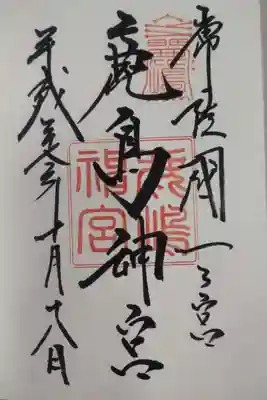 常陸國一之宮
鹿島神宮
平成 年十月十八日
鹿嶋
神宮